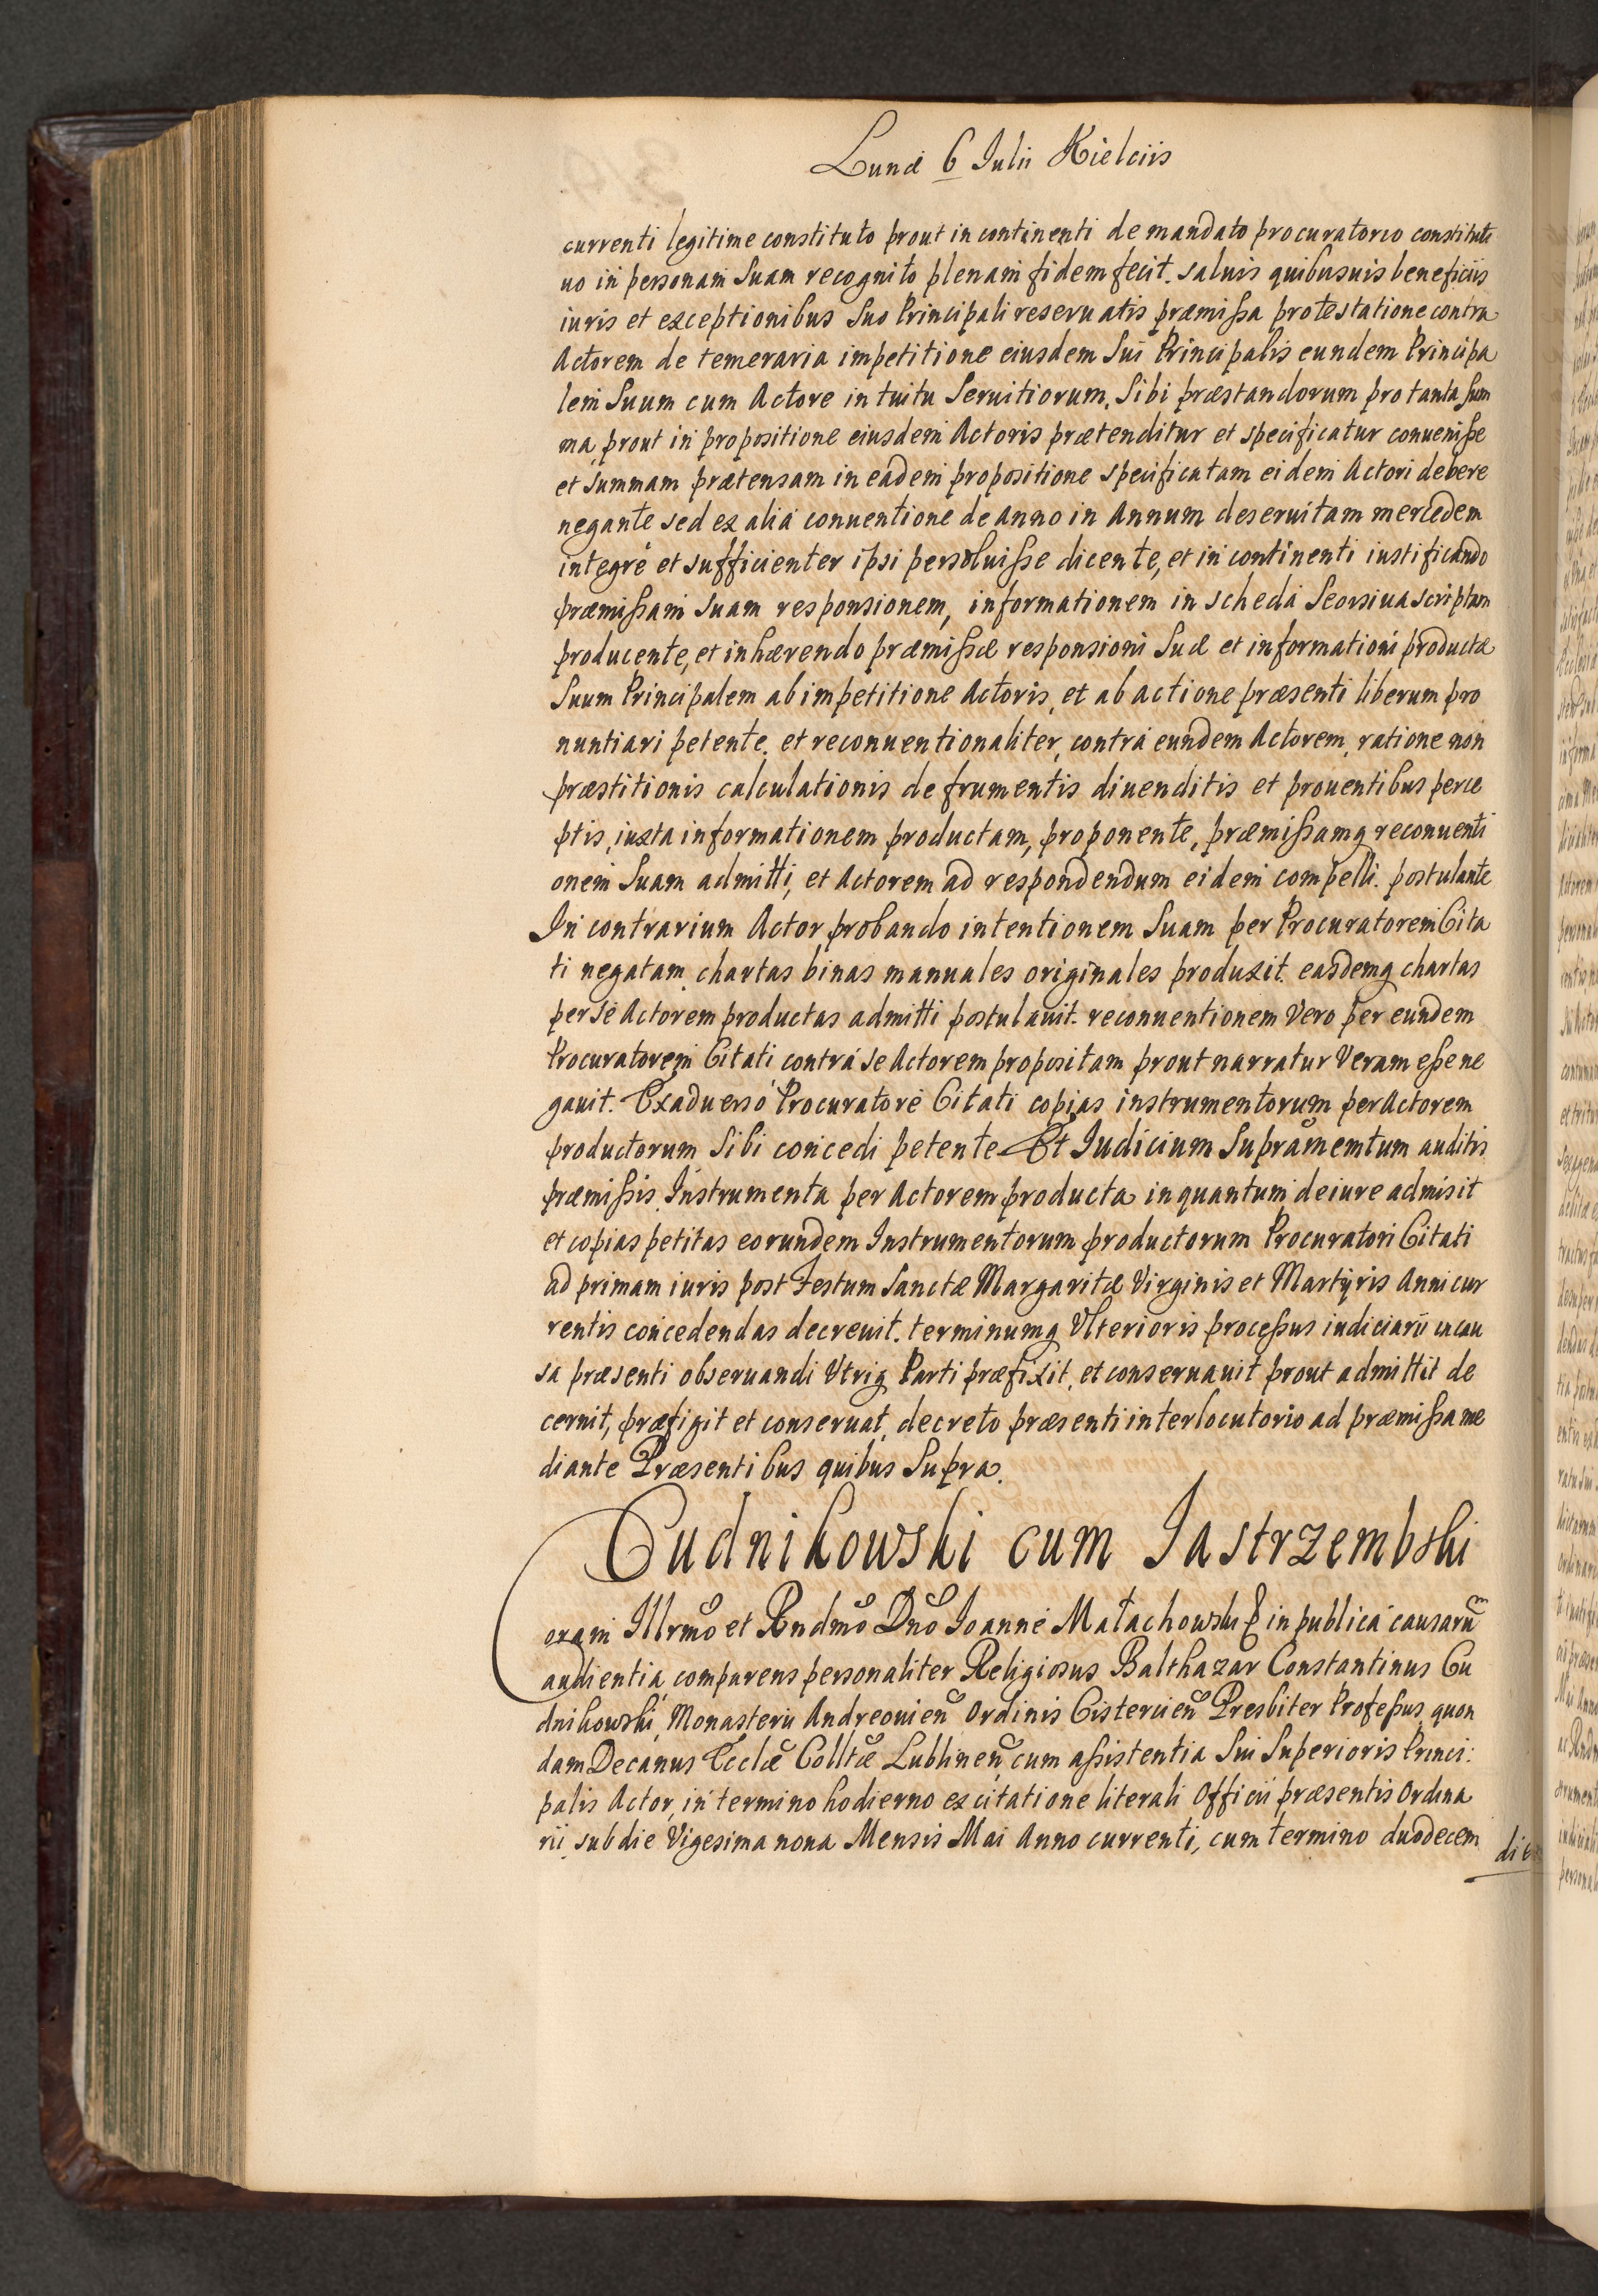 Lunæ 6 Iulii Kielciis
currenti legitime constituto prout in continenti de mandato procuratorio constituti
uo in personam Suam recognito plenam fidem fecit. saluis quibusuis beneficiis
iuris et exceptionibus Suo Principali reseruatis præmissa protestatione contra
Actorem de temeraria impetitione eiusdem Sui Principalis eundem Principa
lem Suum cum Actore intuitu Seruitiorum, Sibi præstandorum pro tanta sum
ma, prout in propositione eiusdem Actoris prætenditur et specificatur conuenisse
et summam prætensam in eadem propositione specificatam eidem Actori debere
negante sed ex aliá conuentione de Anno in Annum deseruitam mercedem
integré et sufficienter ipsi persoluisse dicente, et in continenti iustificando
præmissam suam responsionem, informationem in schedá Seorsiua scriptam
producente, et inhærendo præmissæ responsioni Suæ et informationi productæ
Suum Principalem ab impetitione Actoris, et ab actione præsenti liberum pro
nuntiari petente, et reconuentionaliter, contrá eundem Actorem, ratione non
præstitionis calculationis de frumentis diuenditis et prouentibus perce
ptis, iuxta informationem productam, proponente, præmissamq reconuenti
onem Suam admitti, et Actorem ad respondendum eidem compelli postulante
In contrarium Actor probando intentionem Suam per Procuratorem Cita
ti negatam, chartas binas manuales originales produxit, easdemq chartas
per se Actorem productas admitti postulauit. reconuentionem Vero per eundem
Procuratorem Citati contrá se Actorem propositam prout narratur Veram esse ne
gauit. Exaduersó Procuratoré Citati copias instrumentorum per Actorem
productorum Sibi concedi petente Et Iudicium Supramemtum auditis
præmissis, Instrumenta per Actorem producta in quantum de iure admisit
et copias petitas eorundem Instrumentorum productorum Procuratori Citati
ad primam iuris post Festum Sanctæ Margaritæ Virginis et Martyris Anni cur
rentis concedendas decreuit. terminumq Vlterioris processus iudiciarii in cau
sa præsenti obseruandi Vtriq Parti præfixit, et conseruauit prout admittit de
cernit, præfigit et conseruat, decreto præsenti interlocutorio ad præmissa me
diante Præsentibus quibus Supra.
Cudnikowski cum Jastrzembski
Coram Illrmo et Rndmo Dno Joanne Małachowski E in publicá causarum
audientia comparens personaliter Religiosus Balthazar Constantinus Cu
dnikowski, Monasterii Andreouien Ordinis Cistercien Presbiter Professus, quon
dam Decanus Ecclæ Colltæ Lublinen, cum assistentia Sui Superioris Princi:
palis Actor, in termino hodierno ex citatione literali Officii præsentis Ordina
rii, sub die Vigesima nona Mensis Mai Anno currenti, cum termino duodecem